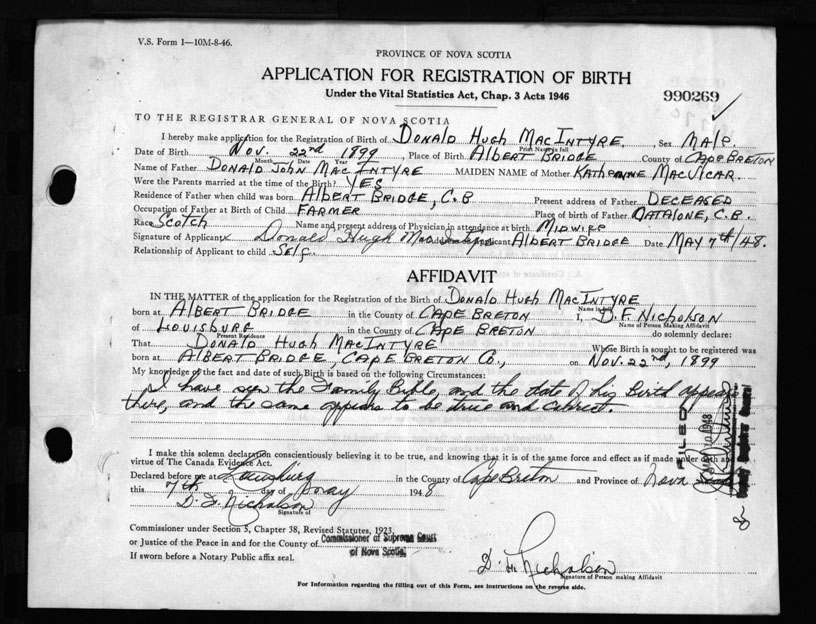 V.S. Form 1—10M-8-46.
PROVINCE OF NOVA SCOTIA
APPLICATION FOR REGISTRATION OF BIRTH
Under the Vital Statistics Act, Chap. 3 Acts 1946
990269 ✓
TO THE REGISTRAR GENERAL OF NOVA SCOTIA
I hereby make application for the Registration of Birth of Donald Hugh MacIntyre, Sex Male.
Print Name in full
Date of Birth Nov. 22nd 1899, Place of Birth Albert Bridge County of Cape Breton
Month Date Year
Name of Father Donald John MacIntyre MAIDEN NAME of Mother Katherine MacVicar.
Were the Parents married at the time of the Birth? Yes
Residence of Father when child was born Albert Bridge, C.B Present address of Father Deceased
Occupation of Father at Birth of Child Farmer Place of birth of Father Catalone, C.B.
Race Scotch Name and present address of Physician in attendance at birth Midwife
Signature of Applicant x Donald Hugh MacIntyre Applicant Albert Bridge Date May 7th/48.
Relationship of Applicant to child Self.
AFFIDAVIT
IN THE MATTER of the application for the Registration of the Birth of Donald Hugh MacIntyre
Name in full
born at Albert Bridge in the County of Cape Breton I, D.F. Nicholson
Name of Person Making Affidavit
of Louisburg in the County of Cape Breton do solemnly declare:
Present Residence
That Donald Hugh MacIntyre Whose Birth is sought to be registered was
born at Albert Bridge, Cape Breton Co., on Nov. 22nd, 1899
My knowledge of the fact and date of such Birth is based on the following Circumstances:
I have seen the Family Bible, and the date of his Birth appears
there, and the same appears to be true and correct.
FILED
MAY 10 1948
Deputy Registrar General
I make this solemn declaration conscientiously believing it to be true, and knowing that it is of the same force and effect as if made under oath and
virtue of The Canada Evidence Act.
Declared before me at Louisburg in the County of Cape Breton and Province of Nova Scotia
this 7th day of May 1948
D. F. Nicholson
Signature of
Commissioner under Section 3, Chapter 38, Revised Statutes, 1923,
or Justice of the Peace in and for the County of Commissioner of Supreme Court
of Nova Scotia
If sworn before a Notary Public affix seal.
Nicholson
Signature of Person making Affidavit
For Information regarding the filling out of this Form, see instructions on the reverse side.